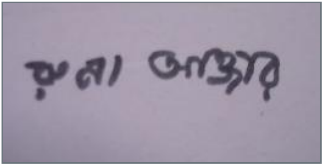 রুনা আক্তার